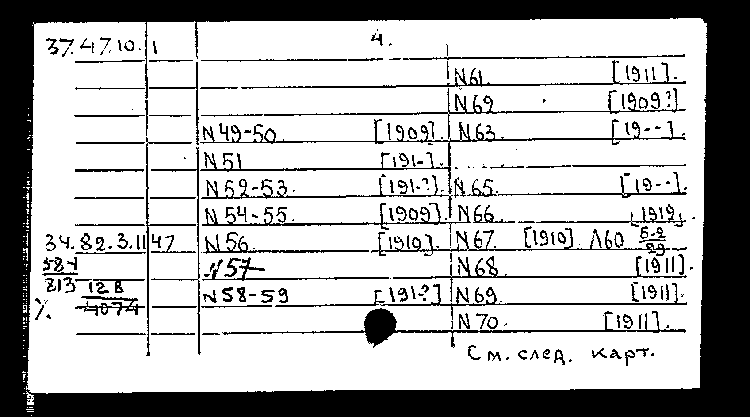 37.47.10. 1 4.
N61. [1911].
N62 [1909?]
N49-50. [1909]. N63. [19--].
N51 [191-].
N52-53. [191-?]. N65. [19--].
N54-55. [1909]. N66. [1912].
34.82.3.11 47 N56 [1910]. N67 [1910] Л60
N57 N68. [1911].
813 128 N58-59 [191-?] N69. [1911].
4074 N70. [1911].
См. след. карт.